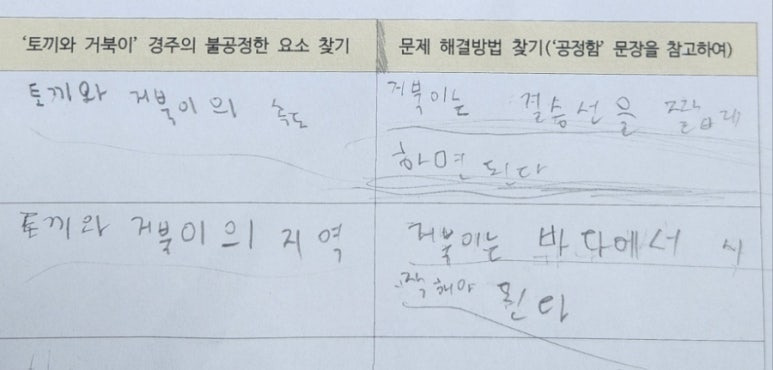 '토끼와 거북이' 경주의 불공정한 요소 찾기
문제 해결방법 찾기('공정함' 문장을 참고하여)
토끼와 거북이의 속도
거북이는 결승선을 짧게
하면된다
토끼와 거북이의 지역
거북이는 바다에서 시
작해야 된다